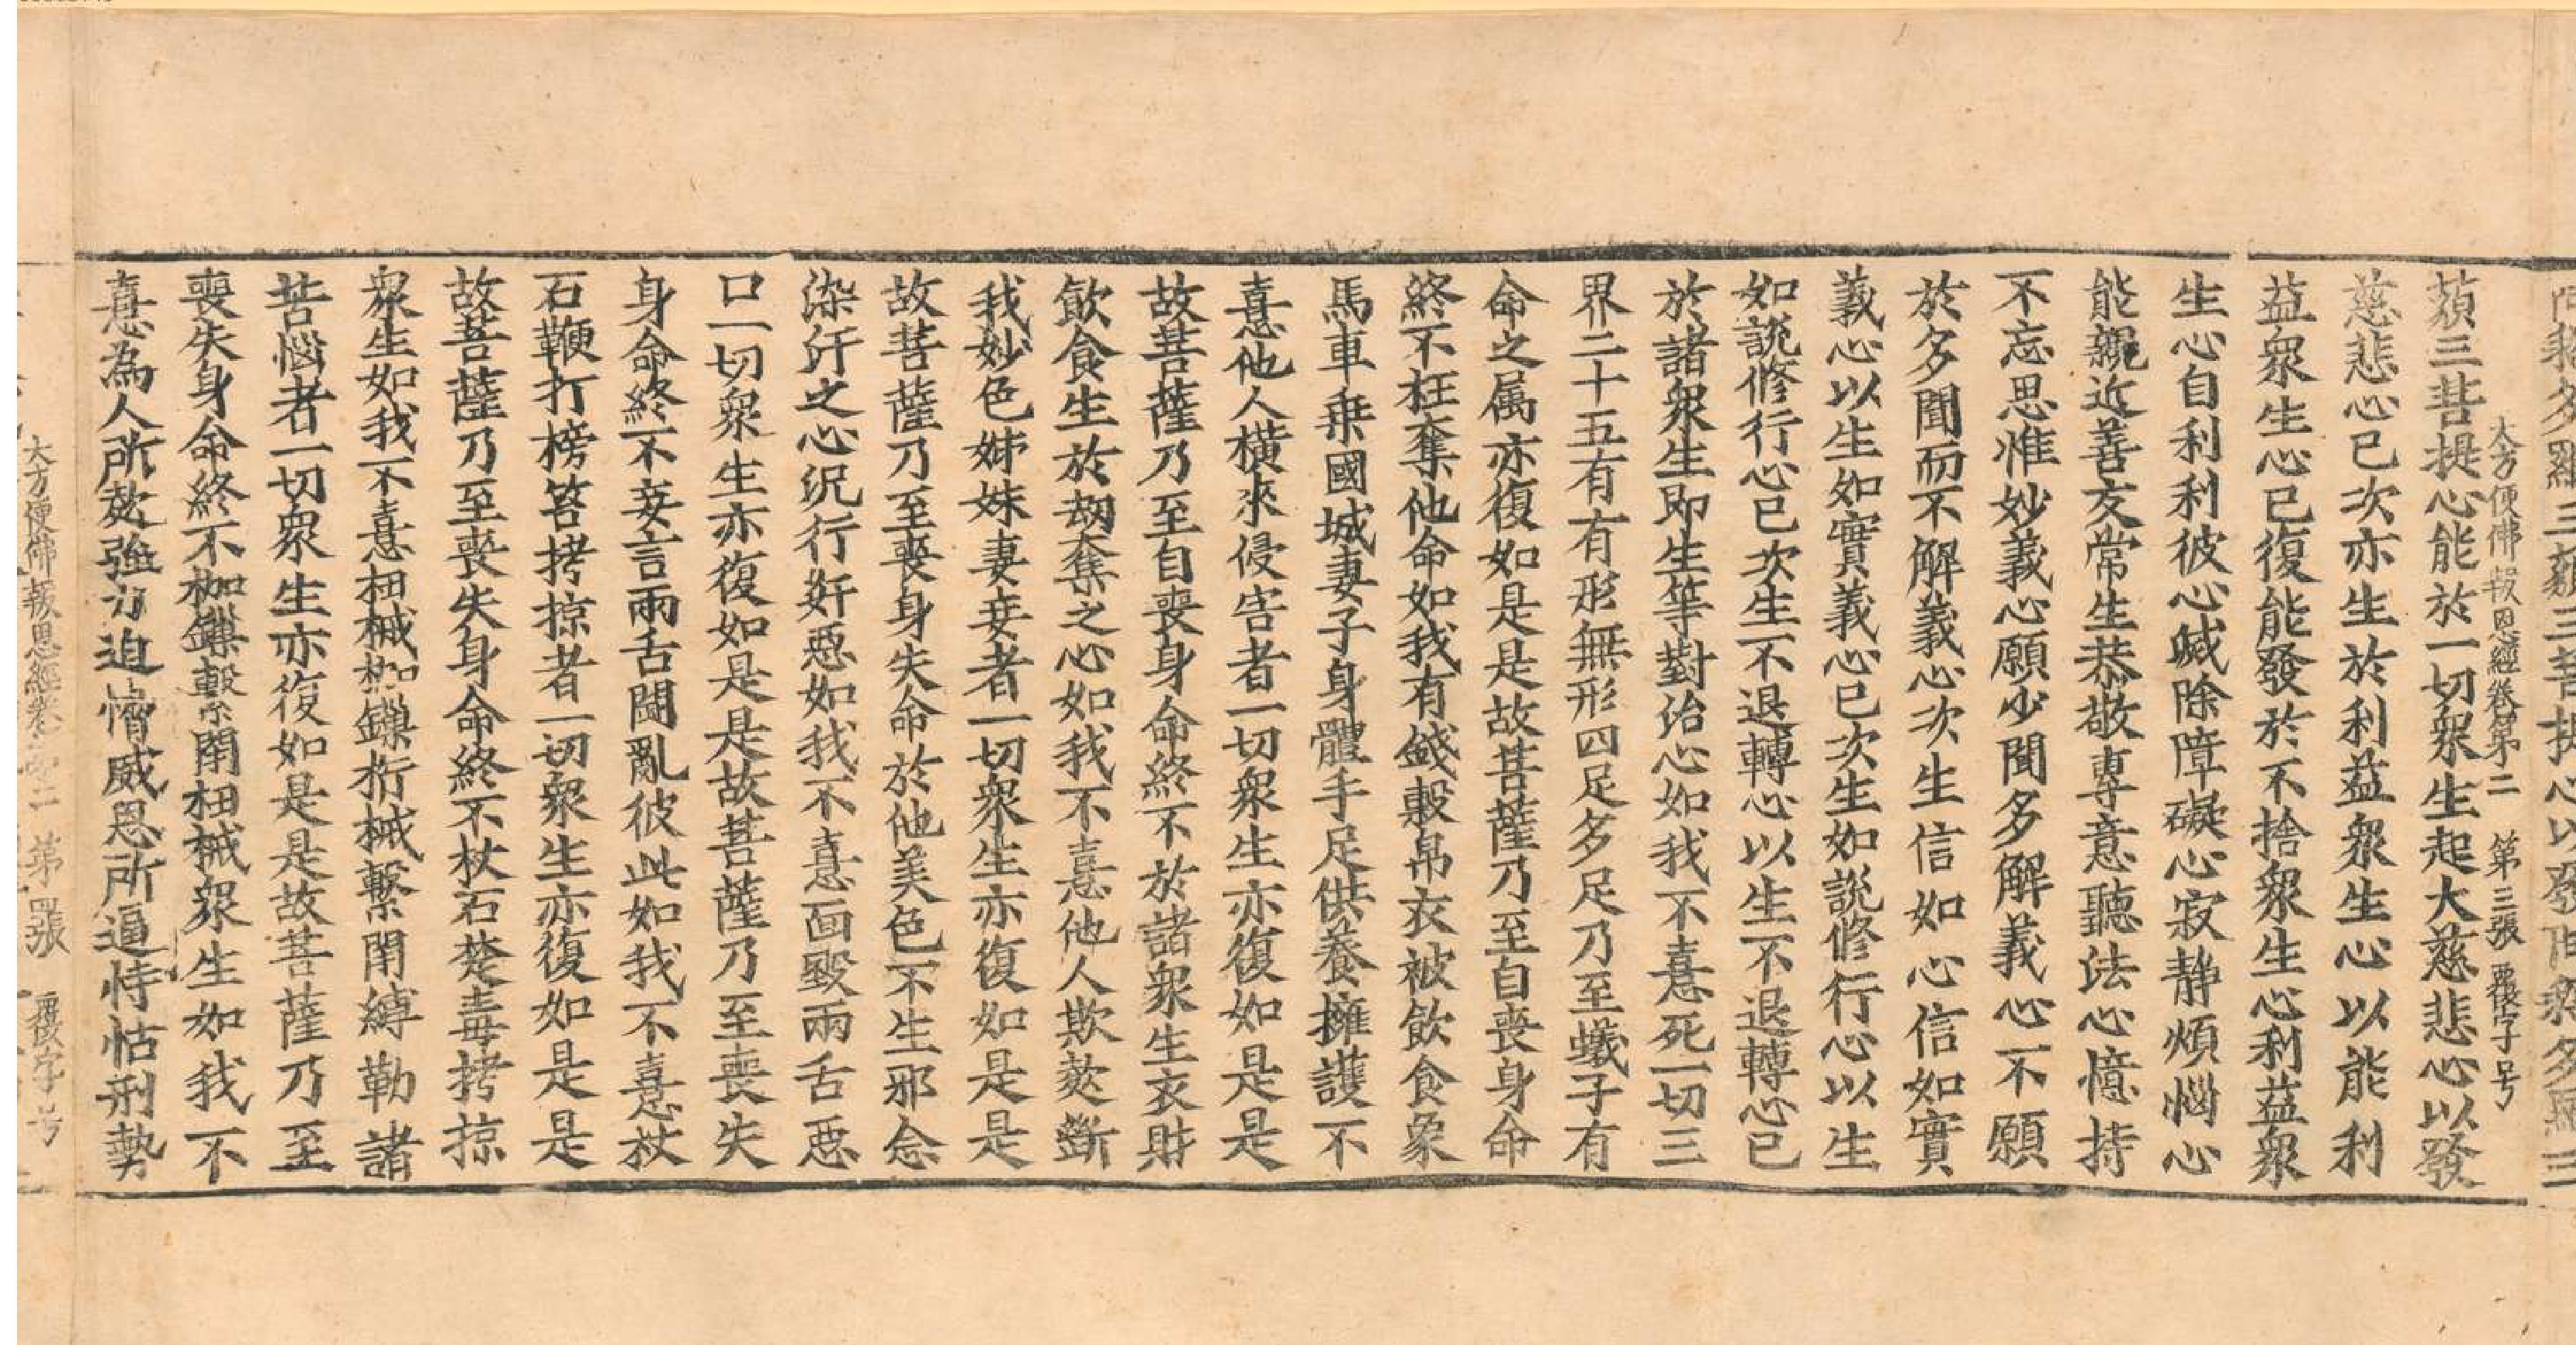 大方便佛報恩經卷第二 第三張 覆字号
藐三菩提心能於一切衆生起大慈悲心以發
慈悲心已次亦生於利益衆生心以能利
益衆生心已復能發於不捨衆生心利益衆
生心自利利彼心滅除障礙心寂靜煩惱心
能親近善友常生恭敬專意聽法心憶持
不忘思惟妙義心願少聞多解義心不願
於多聞而不解義心次生信如心信如實
義心以生如實義心已次生如說修行心以生
如說修行心已次生不退轉心以生不退轉心已
於諸衆生即生等對治心如我不憙死一切三
界二十五有有形無形四足多足乃至蟻子有
命之属亦復如是是故菩薩乃至自喪身命
終不枉奪他命如我有錢穀帛衣被飲食象
馬車乗國城妻子身體手足供養擁護不
憙他人橫來侵害者一切衆生亦復如是是
故菩薩乃至自喪身命終不於諸衆生衣財
飲食生於劫奪之心如我不憙他人欺㱇斷
我妙色姊妹妻妾者一切衆生亦復如是是
故菩薩乃至喪身失命於他美色不生邪念
染汙之心況行姧惡如我不憙面毀兩舌惡
口一切衆生亦復如是是故菩薩乃至喪失
身命終不妄言兩舌鬪亂彼此如我不憙杖
石鞭打榜笞拷掠者一切衆生亦復如是是
故菩薩乃至喪失身命終不杖石楚毒拷掠
衆生如我不憙杻械枷鏁桁械繫閇縛勒諸
苦惱者一切衆生亦復如是是故菩薩乃至
喪失身命終不枷鏁繫閇杻械衆生如我不
憙為人所㱇強力迫憎威恩所逼恃怙刑勢
大方便佛報恩經卷第二 第四張 覆字号